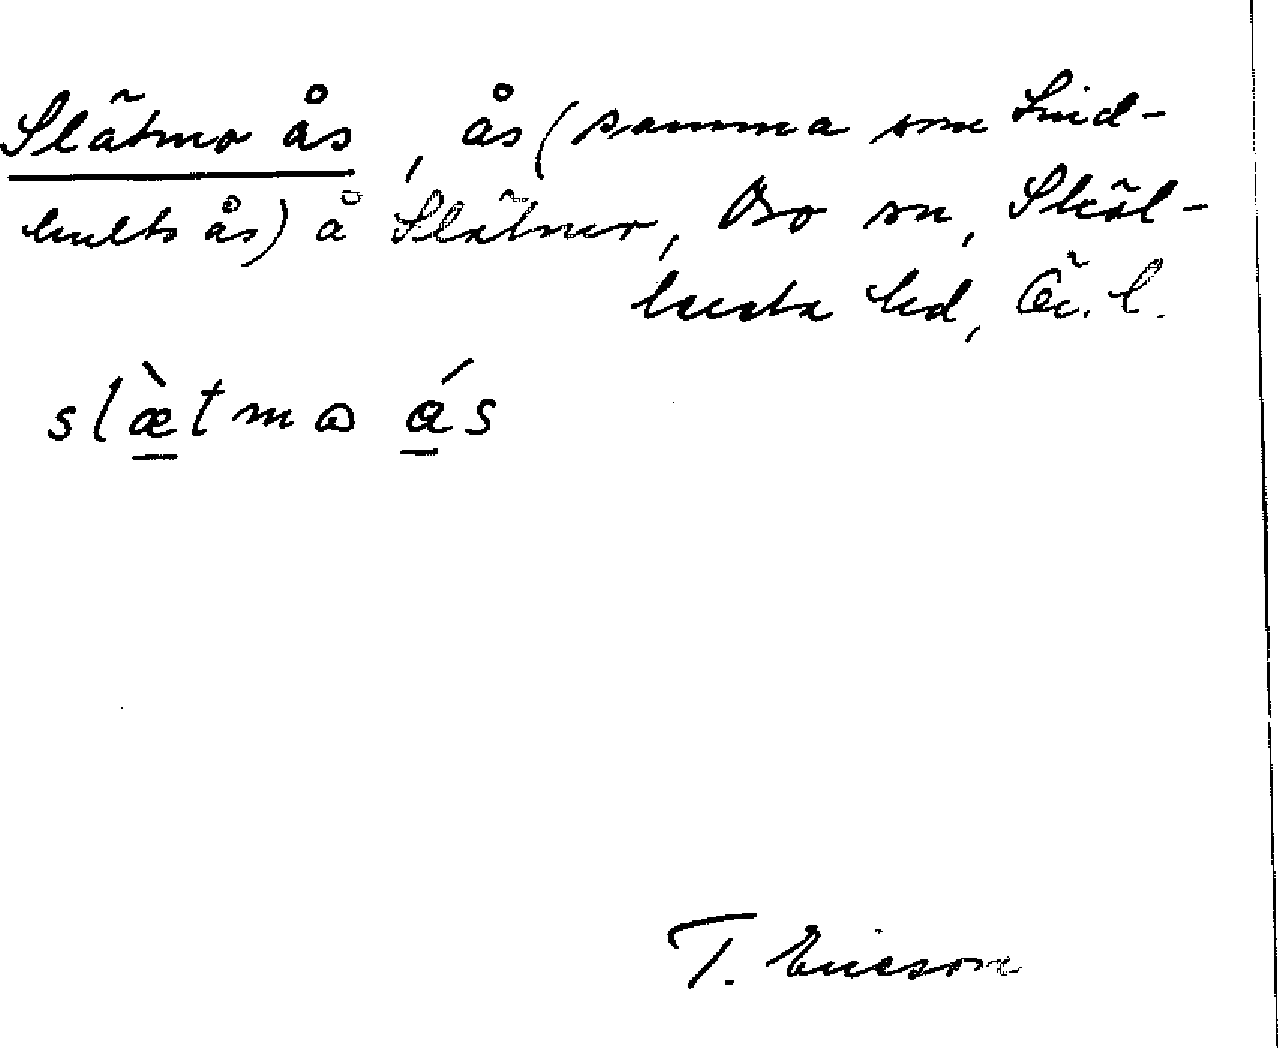 Slätmo ås, ås (samma som Lind-
hults ås) å Slätmo, Bo sn, Sköl-
lersta hd, Ör. l.
slæ̀tmɷ ás
T. Ericson